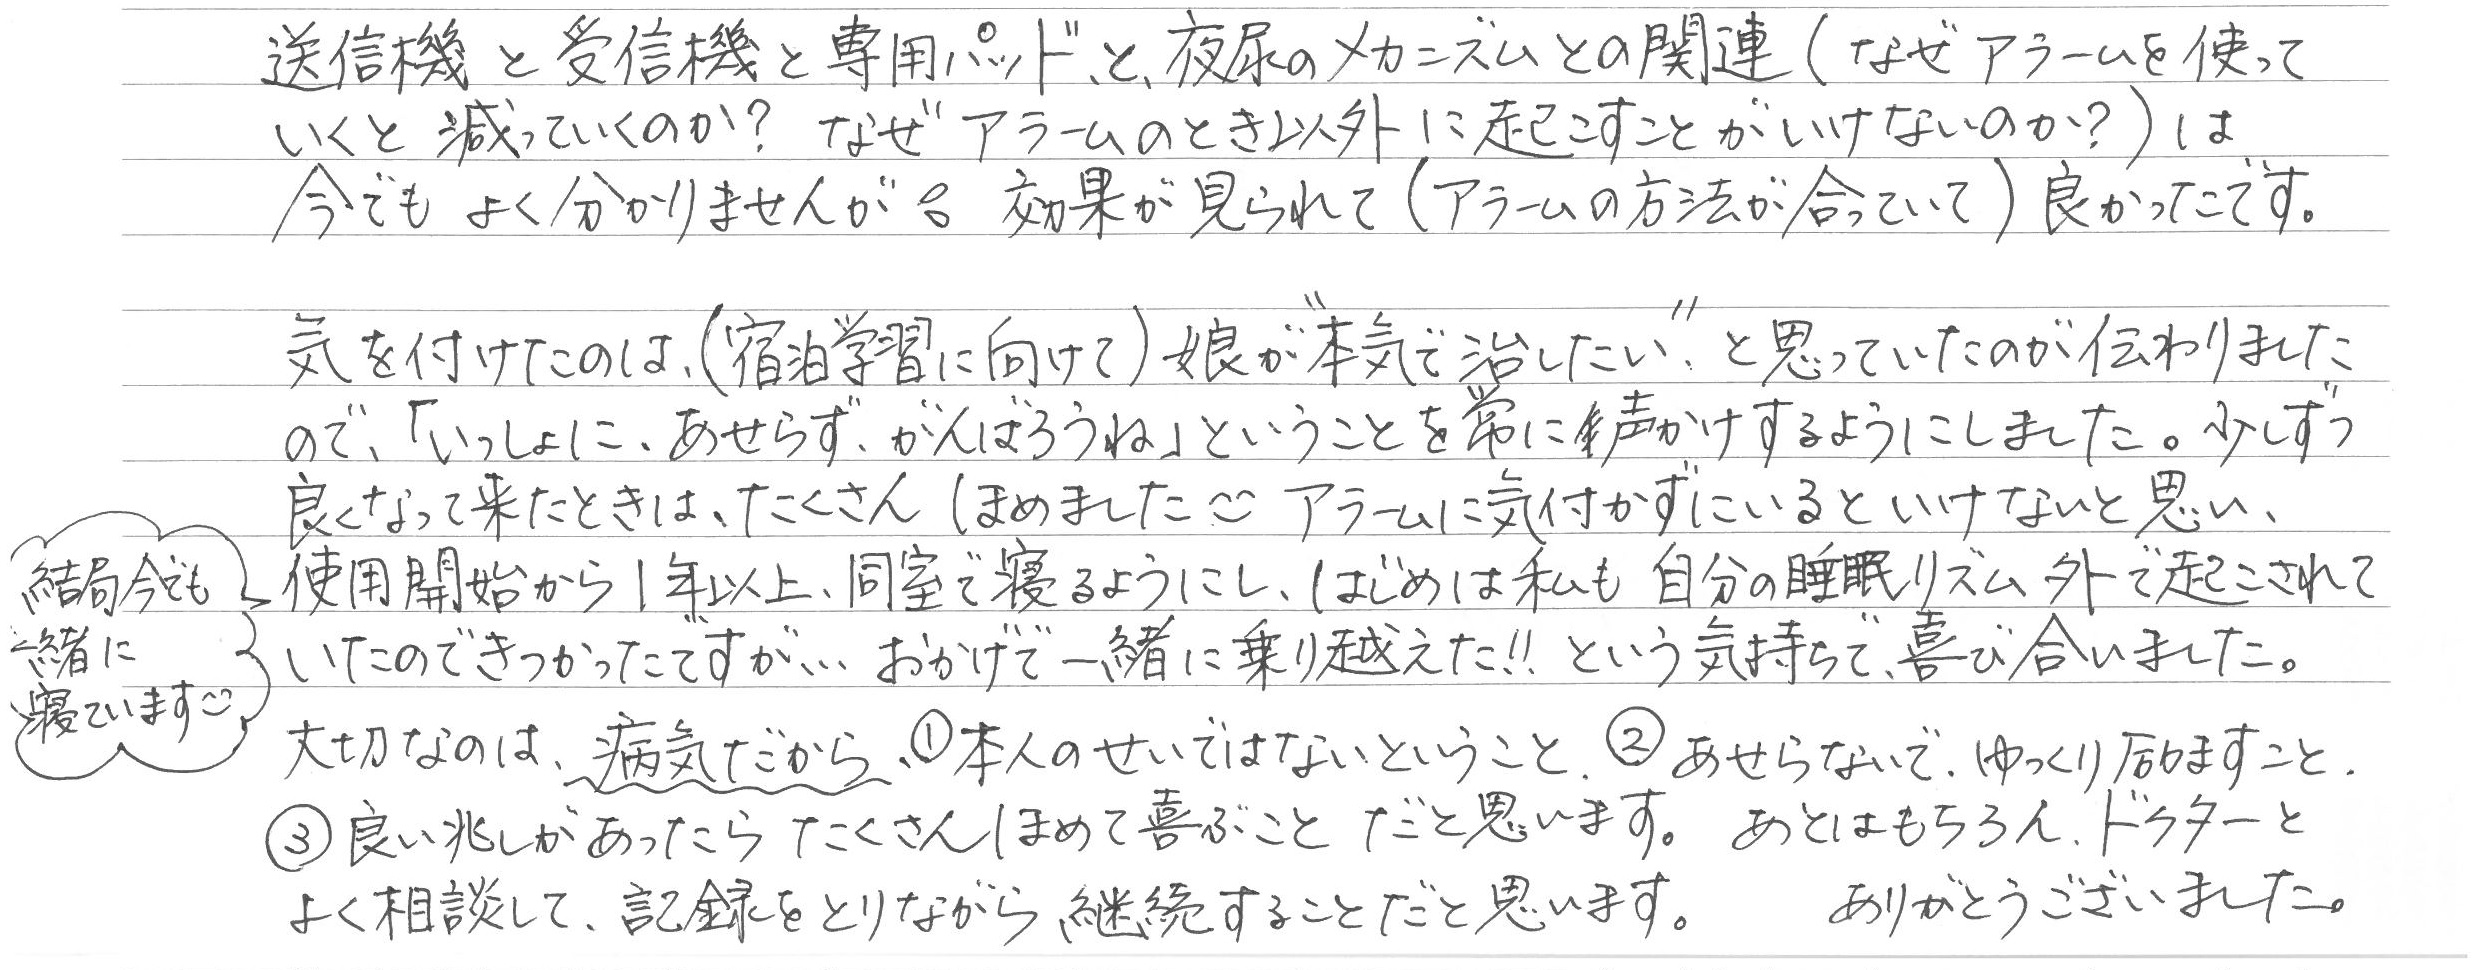 送信機と受信機と専用パッド、と、夜尿のメカニズムとの関連(なぜアラームを使って
いくと減っていくのか？なぜアラームのとき以外に起こすことがいけないのか？)は
今でもよく分かりませんが 効果が見られて(アラームの方法が合っていて)良かったです。
気を付けたのは、(宿泊学習に向けて)娘が"本気で治したい"と思っていたのが伝わりました
ので、「いっしょに、あせらず、がんばろうね」ということを常に声かけするようにしました。少しずつ
良くなって来たときは、たくさんほめました☺ アラームに気付かずにいるといけないと思い、
使用開始から1年以上、同室で寝るようにし、はじめは私も自分の睡眠リズム外で起こされて
いたのできつかったですが… おかげで一緒に乗り越えた!! という気持ちで、喜び合いました。
結局今でも
一緒に
寝ています☺
大切なのは、病気だから、①本人のせいではないということ、②あせらないで、ゆっくり励ますこと、
③良い兆しがあったらたくさんほめて喜ぶことだと思います。あとはもちろん、ドクターと
よく相談して、記録をとりながら継続することだと思います。 ありがとうございました。